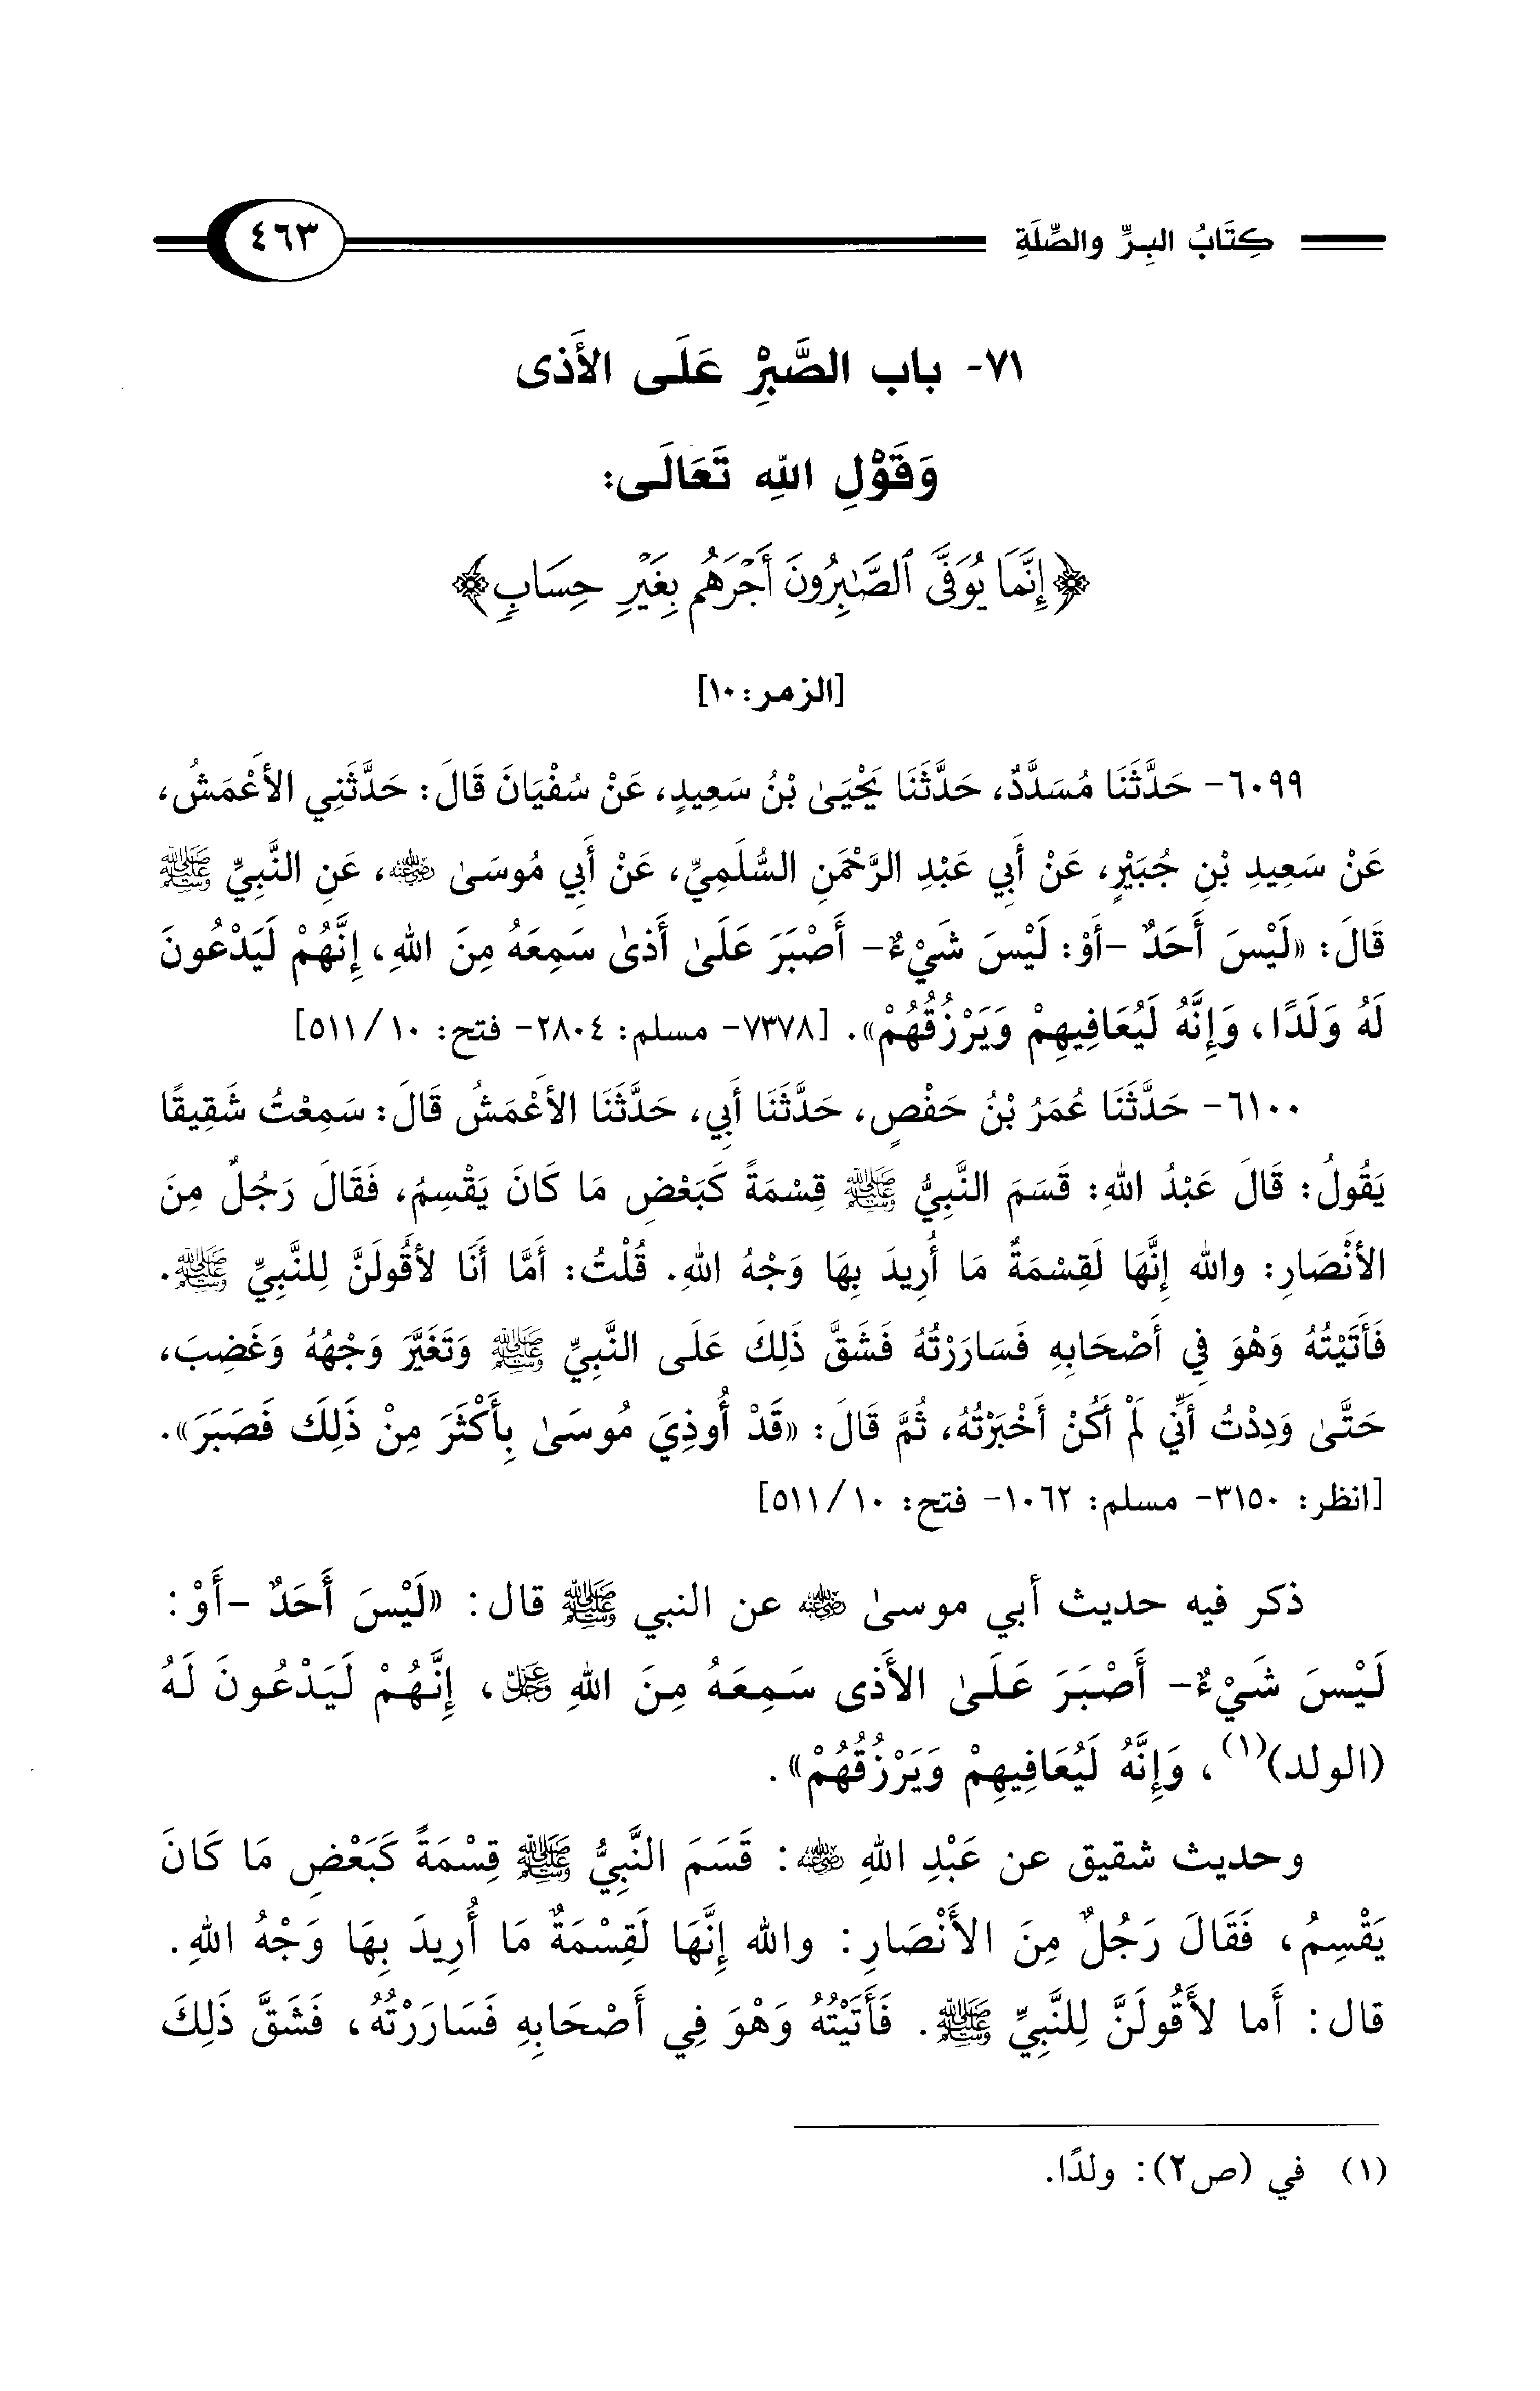 كِتَابُ البِرِّ والصِّلَةِ ٤٦٣
٧١- باب الصَّبْرِ عَلَى الأَذى
وَقَوْلِ اللهِ تَعَالَى:
﴿إِنَّمَا يُوَفَّى ٱلصَّٰبِرُونَ أَجْرَهُم بِغَيْرِ حِسَابٍ﴾
[الزمر: ١٠]
٦٠٩٩- حَدَّثَنَا مُسَدَّدٌ، حَدَّثَنَا يَحْيَىٰ بْنُ سَعِيدٍ، عَنْ سُفْيَانَ قَالَ: حَدَّثَنِي الأَعْمَشُ،
عَنْ سَعِيدِ بْنِ جُبَيْرٍ، عَنْ أَبِي عَبْدِ الرَّحْمَنِ السُّلَمِيِّ، عَنْ أَبِي مُوسَىٰ رضي الله عنه، عَنِ النَّبِيِّ ﷺ
قَالَ: «لَيْسَ أَحَدٌ -أَوْ: لَيْسَ شَيْءٌ- أَصْبَرَ عَلَىٰ أَذىٰ سَمِعَهُ مِنَ اللهِ، إِنَّهُمْ لَيَدْعُونَ
لَهُ وَلَدًا، وَإِنَّهُ لَيُعَافِيهِمْ وَيَرْزُقُهُمْ». [٧٣٧٨- مسلم: ٢٨٠٤- فتح: ١٠/ ٥١١]
٦١٠٠- حَدَّثَنَا عُمَرُ بْنُ حَفْصٍ، حَدَّثَنَا أَبِي، حَدَّثَنَا الأَعْمَشُ قَالَ: سَمِعْتُ شَقِيقًا
يَقُولُ: قَالَ عَبْدُ اللهِ: قَسَمَ النَّبِيُّ ﷺ قِسْمَةً كَبَعْضِ مَا كَانَ يَقْسِمُ، فَقَالَ رَجُلٌ مِنَ
الأَنْصَارِ: والله إِنَّهَا لَقِسْمَةٌ مَا أُرِيدَ بِهَا وَجْهُ اللهِ. قُلْتُ: أَمَّا أَنَا لأَقُولَنَّ لِلنَّبِيِّ ﷺ.
فَأَتَيْتُهُ وَهْوَ فِي أَصْحَابِهِ فَسَارَرْتُهُ فَشَقَّ ذَلِكَ عَلَى النَّبِيِّ ﷺ وَتَغَيَّرَ وَجْهُهُ وَغَضِبَ،
حَتَّىٰ وَدِدْتُ أَنِّي لَمْ أَكُنْ أَخْبَرْتُهُ، ثُمَّ قَالَ: «قَدْ أُوذِيَ مُوسَىٰ بِأَكْثَرَ مِنْ ذَلِكَ فَصَبَرَ».
[انظر: ٣١٥٠- مسلم: ١٠٦٢- فتح: ١٠/ ٥١١]
ذكر فيه حديث أبي موسىٰ رضي الله عنه عن النبي ﷺ قال: «لَيْسَ أَحَدٌ -أَوْ:
لَيْسَ شَيْءٌ- أَصْبَرَ عَلَىٰ الأَذى سَمِعَهُ مِنَ اللهِ عز وجل، إِنَّهُمْ لَيَدْعُونَ لَهُ
(الولد)(١)، وَإِنَّهُ لَيُعَافِيهِمْ وَيَرْزُقُهُمْ».
وحديث شقيق عن عَبْدِ اللهِ رضي الله عنه: قَسَمَ النَّبِيُّ ﷺ قِسْمَةً كَبَعْضِ مَا كَانَ
يَقْسِمُ، فَقَالَ رَجُلٌ مِنَ الأَنْصَارِ: والله إِنَّهَا لَقِسْمَةٌ مَا أُرِيدَ بِهَا وَجْهُ اللهِ.
قال: أَما لأَقُولَنَّ لِلنَّبِيِّ ﷺ. فَأَتَيْتُهُ وَهْوَ فِي أَصْحَابِهِ فَسَارَرْتُهُ، فَشَقَّ ذَلِكَ
(١) في (ص٢): ولدًا.